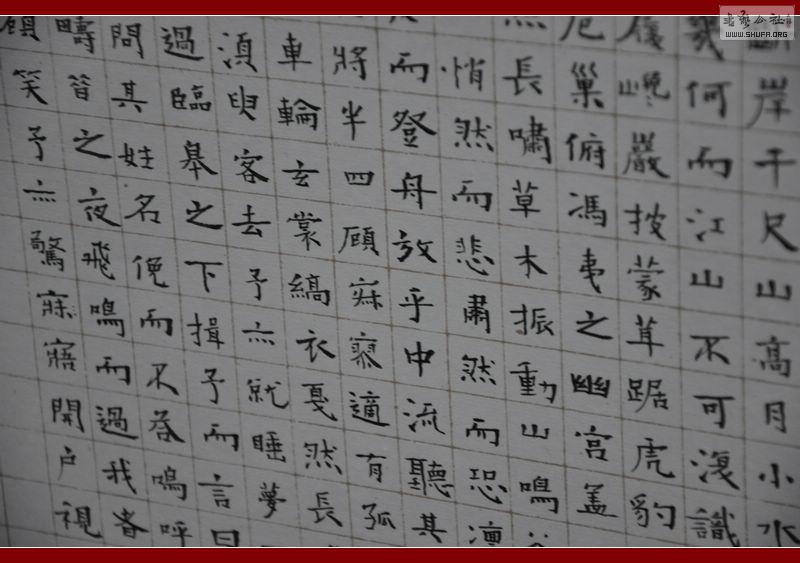 斷岸千尺山高月小水
幾何而江山不可復識
履巉巖披蒙茸踞虎豹
危巢俯馮夷之幽宮盖
然長嘯草木振動山鳴谷
悄然而悲肅然而恐凛
而登舟放乎中流聽其
將半四顧寂寥適有孤
車輪玄裳縞衣戛然長
湏臾客去予亦就睡夢
過臨皋之下揖予而言曰
問其姓名俛而不荅鳴呼
疇昔之夜飛鳴而過我者
顧笑予亦驚寐寤開戶視
書藝公社
WWW.SHUFA.ORG